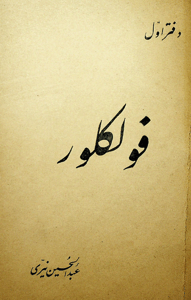 دفتر اول
فولکلور
عبدالحسین نیری